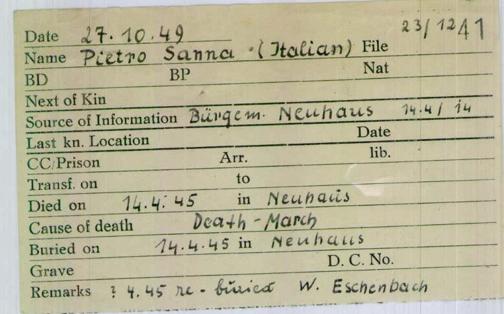 Date 27.10.49 23/1241
Name Pietro Sanna (Italian) File
BD BP Nat
Next of Kin
Source of Information Bürgem. Neuhaus 14.4/14
Last kn. Location Date
CC/Prison Arr. lib.
Transf. on to
Died on 14.4.45 in Neuhaus
Cause of death Death-March
Buried on 14.4.45 in Neuhaus
Grave D. C. No.
Remarks ? 4.45 re-buried W. Eschenbach